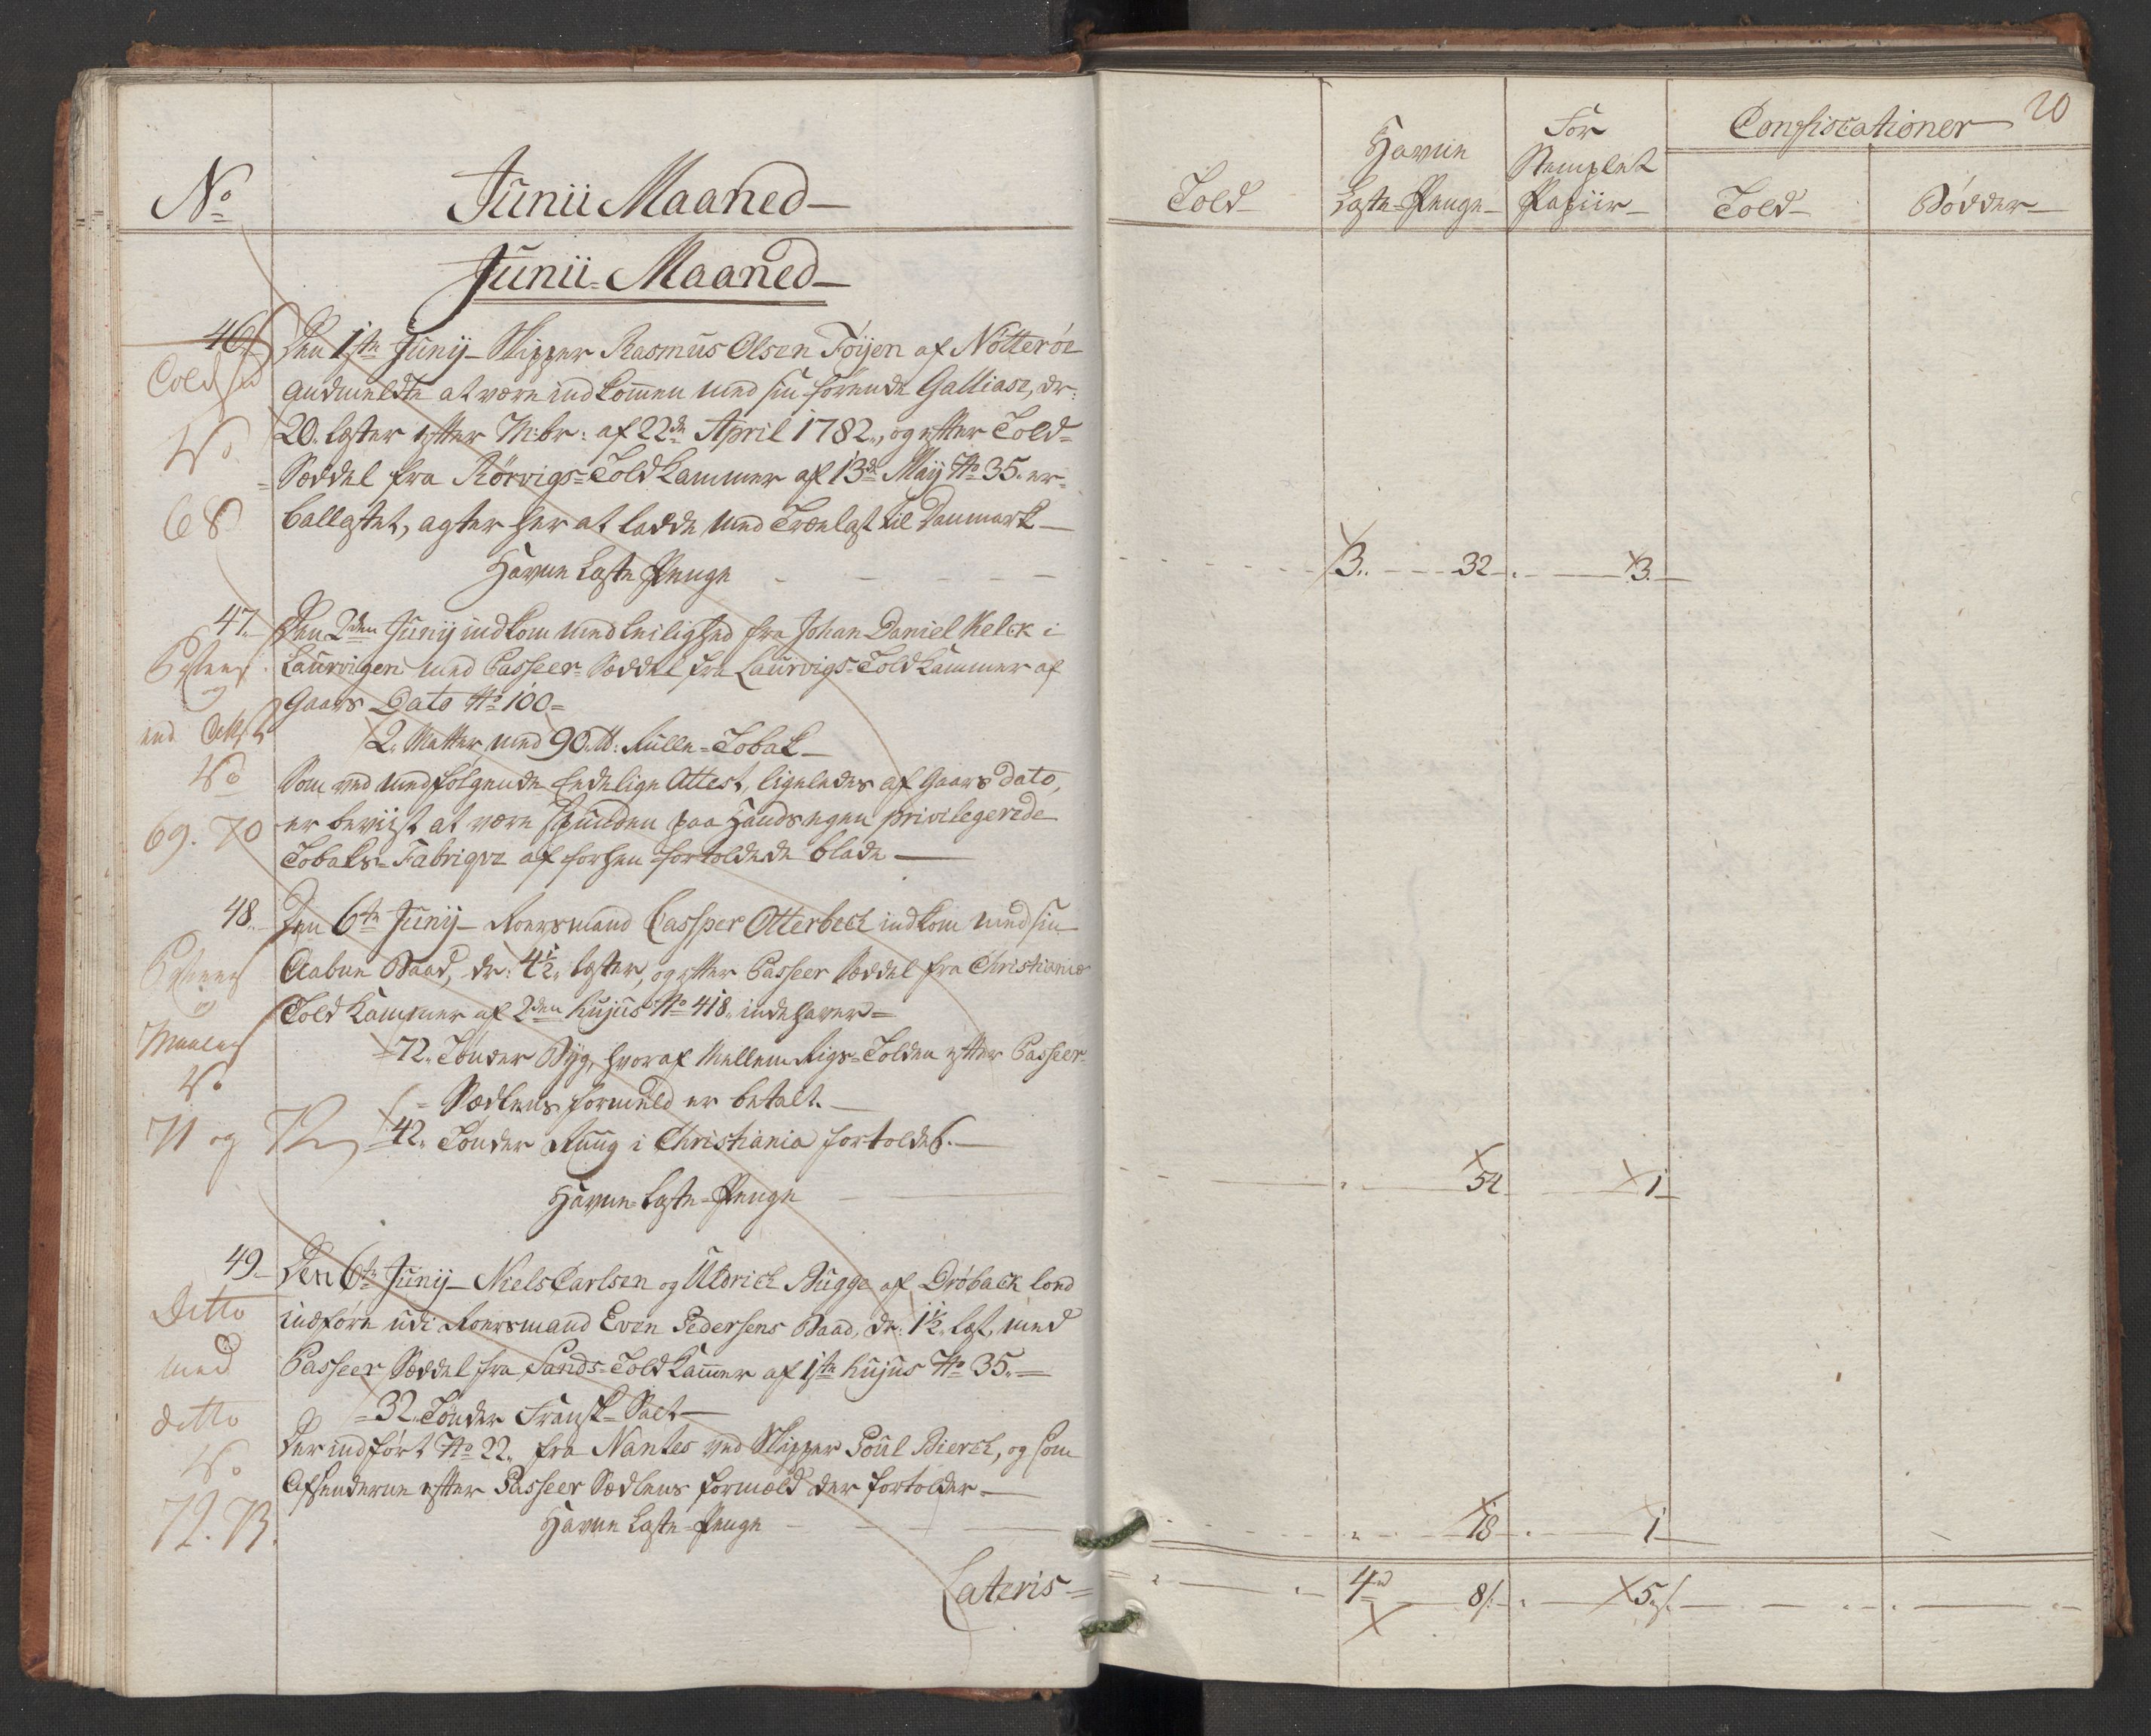 No
Junii Maaned
Junii Maaned
46.
Den 1ste Junij Skipper Rasmus Olsen Föyen af Nötteröe
anmeldte at være indkommen med sin förende Galliase, dr:
20. læster efter M:br: af 22de April 1782., og efter Told-
Seddel fra Rörvigs Told Kammer af 13de Maij No 35. er
ballastet, agter her at ladde med Trælast til Danmark
Havne Læste Penge
No
68
47.
Den 2den Junij indkom med Leilighed fra Johan Daniel Kelck i
Laurvigen med Passeer-Seddel fra Laurvigs Told Kammer af
Gaars Dato No 100
2. Matter med 90 lb: Rulle-Tobak
Som ved medfölgende Eedelige Attest, ligeledes af Gaars dato,
er beviist at være spunden paa Hands egen privilegerede
Tobaks-Fabriqve af forhen fortoldede blade
og
No
69. 70
48.
Den 6te Junij Roersmand Cassper Otterbech indkom med sin
Aabne Baad, dr: 4½. læster, og efter Passeer Seddel fra Christiania
Told Kammer af 2den hujus No 418. indehaver
72. Tönder Byg, hvoraf Mellem Rigs-Tolden efter Passeer-
Sedlens formeld er betalt.
42. Tönder Ruug i Christiania fortoldet.
Havne-Læste-Penge
og
No
71 og 72
49
Den 6te Junij Niels Carlsen og Uldrich Bugge af Dröback lod
indföre udi Roersmand Even Pedersens Baad, dr: 1½. læst, med
Passeer Seddel fra Sands Told Kammer af 1ste hujus No 35.
32. Tönder Fransk Salt
Der indfört No 22. fra Nantes ved Skipper Poul Bierch, og som
Afsenderne efter Passeer Sedlens formeld der fortolder
Havne Læste-Penge
Ditto
med
ditto
No
72. 73.
Lateris
20
Told
Havne
Læste-Penge
For
Stemplet
Papiir
Confiscationer
Told
Bödder
3. 32 3.
54 1
18 1
4rd 8s. 5s.